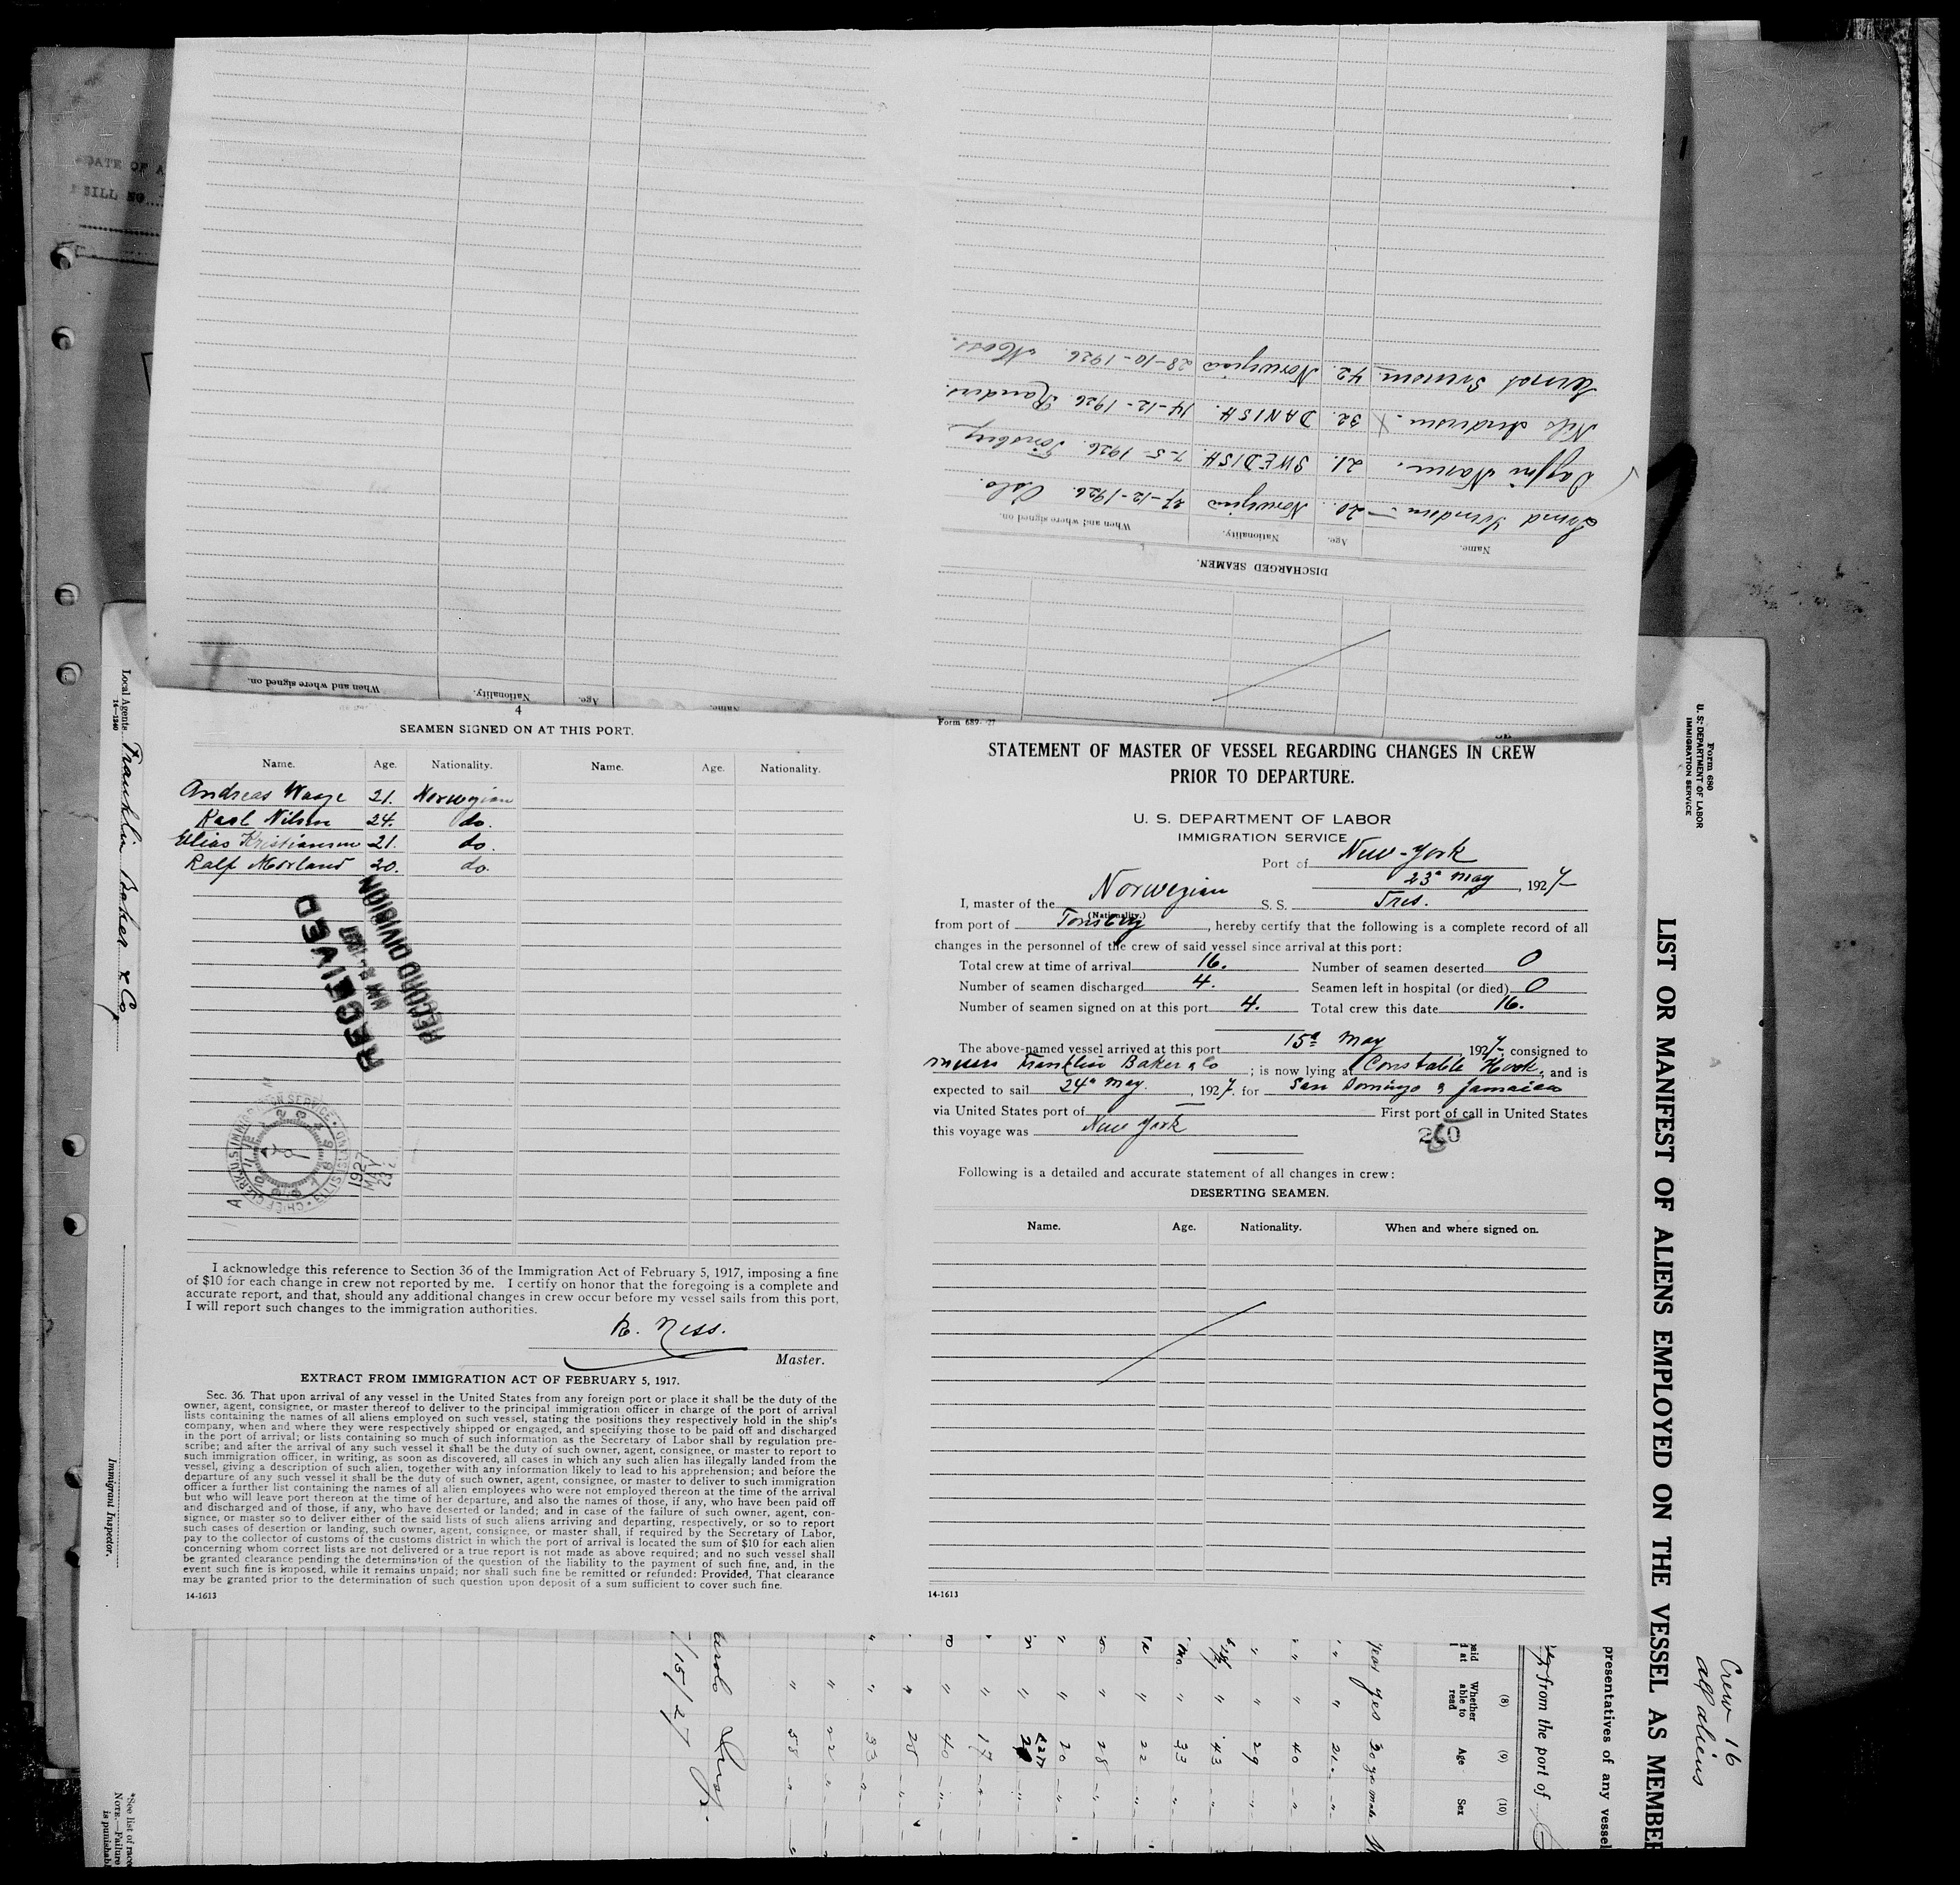 DATE OF A
BILL NO
DISCHARGED SEAMEN.
Name. Age. Nationality. When and where signed on.
20. Norwegian 27-12-1926. Oslo.
21. SWEDISH. 7-5-1926. Tönsberg
Nils Andersen. X 32. DANISH. 14-12-1926. Randers.
42. Norwegian 28-10-1926. Moss.
Name. Age. Nationality. When and where signed on.
4
SEAMEN SIGNED ON AT THIS PORT.
Name. Age. Nationality. Name. Age. Nationality.
Andreas Waage 21. Norwegian
Karl Nilsen 24. do.
Elias Kristiansen 21. do.
Ralf Morland 20. do.
RECEIVED
MAY 24 1927
RECORD DIVISION
CHIEF CLERK U.S. IMMIGRATION SERVICE ELLIS ISLAND
1927
MAY
23
I acknowledge this reference to Section 36 of the Immigration Act of February 5, 1917, imposing a fine
of $10 for each change in crew not reported by me. I certify on honor that the foregoing is a complete and
accurate report, and that, should any additional changes in crew occur before my vessel sails from this port,
I will report such changes to the immigration authorities.
R. Ness.
Master.
EXTRACT FROM IMMIGRATION ACT OF FEBRUARY 5, 1917.
Sec. 36. That upon arrival of any vessel in the United States from any foreign port or place it shall be the duty of the
owner, agent, consignee, or master thereof to deliver to the principal immigration officer in charge of the port of arrival
lists containing the names of all aliens employed on such vessel, stating the positions they respectively hold in the ship's
company, when and where they were respectively shipped or engaged, and specifying those to be paid off and discharged
in the port of arrival; or lists containing so much of such information as the Secretary of Labor shall by regulation pre-
scribe; and after the arrival of any such vessel it shall be the duty of such owner, agent, consignee, or master to report to
such immigration officer, in writing, as soon as discovered, all cases in which any such alien has illegally landed from the
vessel, giving a description of such alien, together with any information likely to lead to his apprehension; and before the
departure of any such vessel it shall be the duty of such owner, agent, consignee, or master to deliver to such immigration
officer a further list containing the names of all alien employees who were not employed thereon at the time of the arrival
but who will leave port thereon at the time of her departure, and also the names of those, if any, who have been paid off
and discharged and of those, if any, who have deserted or landed; and in case of the failure of such owner, agent, con-
signee, or master so to deliver either of the said lists of such aliens arriving and departing, respectively, or so to report
such cases of desertion or landing, such owner, agent, consignee, or master shall, if required by the Secretary of Labor,
pay to the collector of customs of the customs district in which the port of arrival is located the sum of $10 for each alien
concerning whom correct lists are not delivered or a true report is not made as above required; and no such vessel shall
be granted clearance pending the determination of the question of the liability to the payment of such fine, and, in the
event such fine is imposed, while it remains unpaid; nor shall such fine be remitted or refunded: Provided, That clearance
may be granted prior to the determination of such question upon deposit of a sum sufficient to cover such fine.
14-1613
Form 689
STATEMENT OF MASTER OF VESSEL REGARDING CHANGES IN CREW
PRIOR TO DEPARTURE.
U. S. DEPARTMENT OF LABOR
IMMIGRATION SERVICE
Port of New-York
23d May, 1927
I, master of the Norwegian S. S. Tres.
(Nationality.)
from port of Tonsberg, hereby certify that the following is a complete record of all
changes in the personnel of the crew of said vessel since arrival at this port:
Total crew at time of arrival 16. Number of seamen deserted 0
Number of seamen discharged 4. Seamen left in hospital (or died) 0
Number of seamen signed on at this port 4. Total crew this date 16.
The above-named vessel arrived at this port 15th May 1927, consigned to
Messrs Franklin Baker & Co; is now lying at Constable Hook, and is
expected to sail 24th May, 1927. for San Domingo & Jamaica
via United States port of First port of call in United States
this voyage was New York
Following is a detailed and accurate statement of all changes in crew:
DESERTING SEAMEN.
Name. Age. Nationality. When and where signed on.
14-1613
Local Agents Franklin Baker & Co,
14-1240
Immigrant Inspector.
*See list of race
NOTE.—Failure
is punishabl
Form 680
U. S. DEPARTMENT OF LABOR
IMMIGRATION SERVICE
LIST OR MANIFEST OF ALIENS EMPLOYED ON THE VESSEL AS MEMBER
Crew 16
all aliens
presentatives of any vessel
from the port of
(8) (9) (10)
Whether able to read Age Sex
yes 30 yrs male
21
40
29
43
33
22
28
20
17
40
28
33
22
58
5/15/27